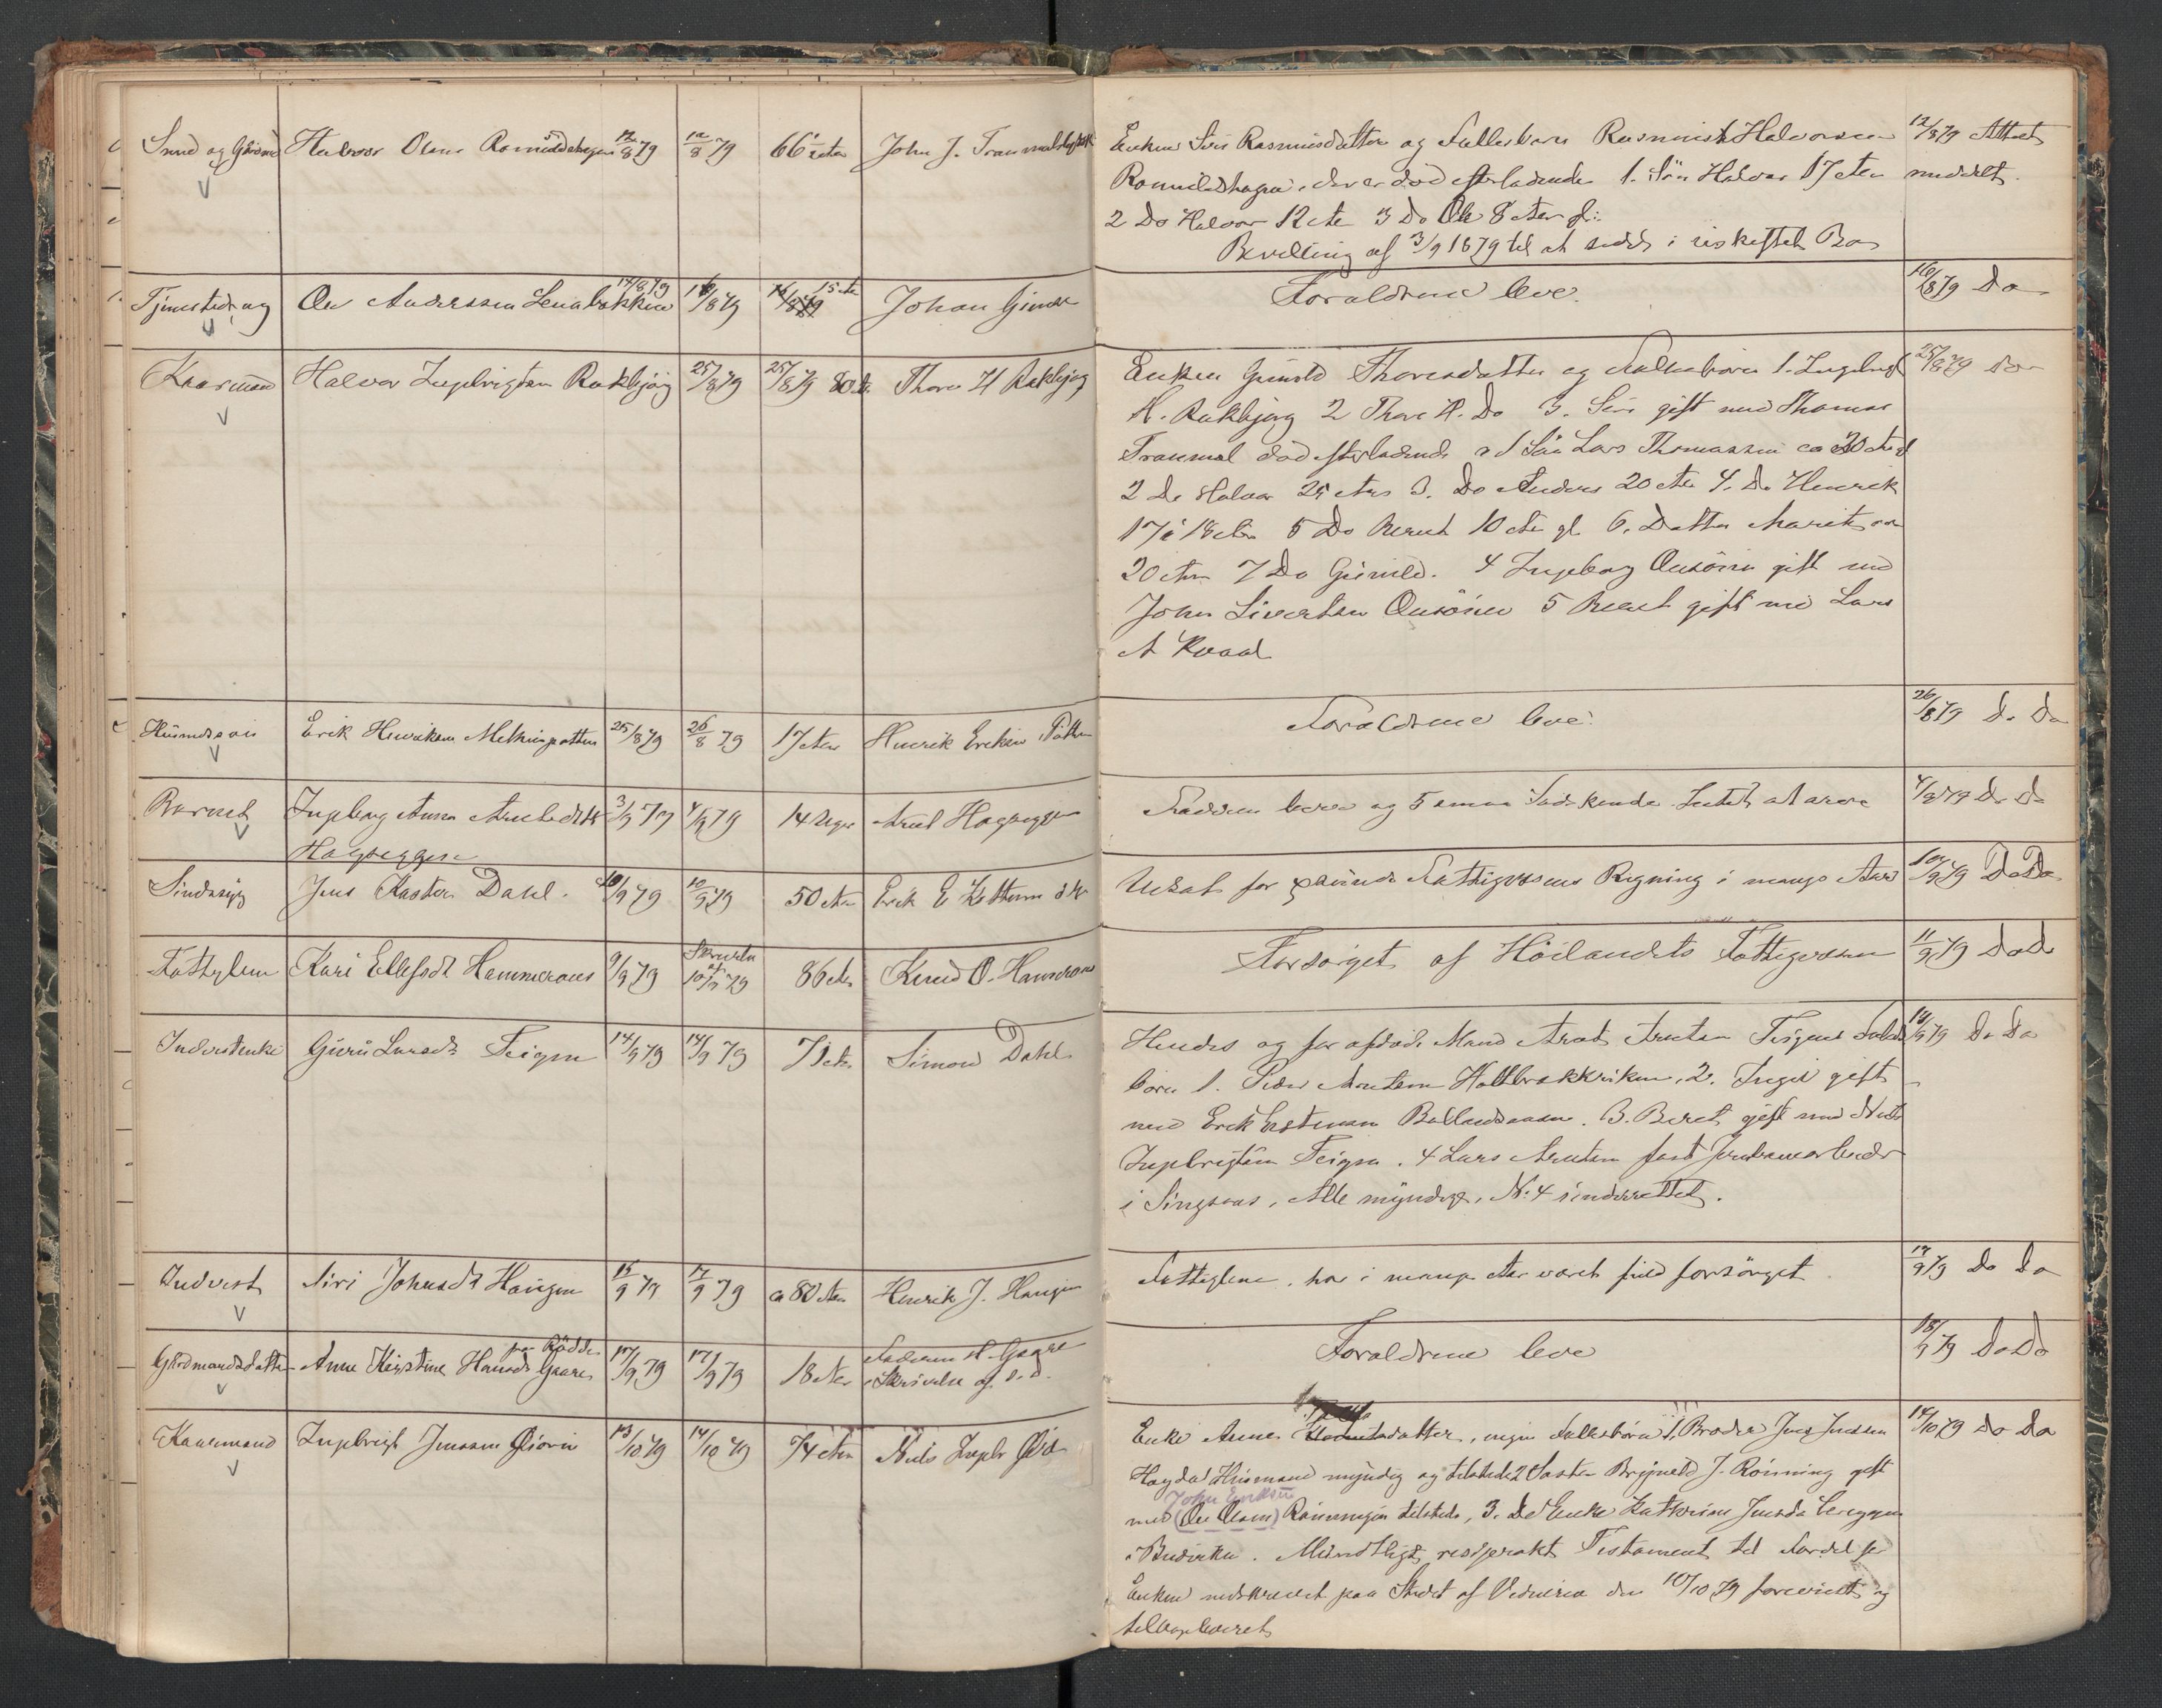 Smed og Gbrmd Halvor Olsen Romuldshagen 12/8 79 12/8 79 66 Aar John J. Tranmæl
Enken Siri Rasmusdatter og Fællesbarn Rasmus Halvorsen 12/8 79 Attest
Romuldshagen, der er død efterladende 1. Søn Halvor 17 Aar meddelt.
2 Do Halvor 12 Aar 3 Do Ole 8 Aar gl:
Bevilling af 3/9 1879 til at sidde i uskiftet Bo
Tjenestedr. Ole Anderssen Lenabakken 14/8 79 16/8 79 15 Aar Johan
Forældrene leve. 16/8 79 Do
Kaarmand Halvor Ingebrigtsen Rakbjørg 25/8 79 25/8 79 80 Aar Thore H Rakbjørg
Enken Gunild Thoresdatter og Fællesbørn 1. Ingebrigt 25/8 79 Do
H. Rakbjørg 2 Thore H. Do 3. Siri gift med Thomas
Tranmæl død efterladende 1 Søn Lars Thomassen ca 30 Aar
2 Do Halvor 25 Aar 3. Do Anders 20 Aar 4. Do Henrik
17 à 18 Aar 5 Do Bernt 10 Aar gl 6. Datter Marit ca
20 Aar 7 Do Gunild. 4 Ingeborg Ousøien gift med
John Sivertsen Ousøien 5 Beret gift med Lars
A Kvaal
Husmdssøn Erik Henriksen Melhuspotten 25/8 79 26/8 79 17 Aar Henrik Eriksen Potten
Forældrene leve. 26/8 79 Do Do
Barnet Ingeborg Anna Arntsdtr 3/9 79 4/9 79 14 Uger Arnt Hagseggen
Haugseggen
Faderen lever og 5 Søskende. Intet at arve 4/9 79 Do Do
Sindssyg Jens Kastor Dahl. 10/9 79 10/9 79 50 Aar Erik E
Udsat for Fattigvæsenets Regning i mange Aar 10/9 79 Do Do
Fattiglem Kari Ellefsdt Hammeraas 9/9 79 Skrivelse af 10/9 79 86 Aar Knud O. Hammeraas
Forsørget af Høilandets Fattigvæsen 11/9 79 Do Do
Inderstenke Guru Larsdt Teigen 14/9 79 14/9 79 71 Aar Simon Dahl
Hendes og før afdøde Mand Arnt Arntsen Teigens Fælles 14/9 79 Do Do
børn 1. Peder Arntsen Holtbrækken, 2. Ingri gift
med Erik Estensen Bollandsaasen. 3. Beret gift med Nils
Ingebrigtsen Teigen. 4 Lars Arntsen fast Jernbanearbeider
i Singsaas, Alle myndige, No 4 underrettet.
Inderst Siri Johnsdt Haugen 15/9 79 17/9 79 ca 80 Aar Henrik J. Haugen
Fattiglem, har i mange Aar været fuld forsørget 17/9 79 Do Do
Gbrdmandsdatter Anne Kirstine Hansdt Gaare paa Rødde 17/9 79 17/9 79 18 Aar Faderen H. Gaare
Skrivelse af s. d.
Forældrene leve 18/9 79 Do Do
Kaarmand Ingebrigt Jenssen Øiøren 13/10 79 14/10 79 74 Aar Nils Ingebr Øiø
Enke Anne datter, ingen Fællesbørn 1. Broder Jens Jenssen 14/10 79 Do Do
Hagdal Husmand myndig og tilstede 2 Søster Brynild J. Rønning gift
John Eriksen
med (Ole Olsen) Rønningen tilstede, 3. Do Enke Kathrine Jensdt
i Budviken. Mundtligt resiprokt Testament til Fordel for
Enken nedskrevet paa Stedet af Vidnerne den 10/10 79 forevist og
tilbageleveret